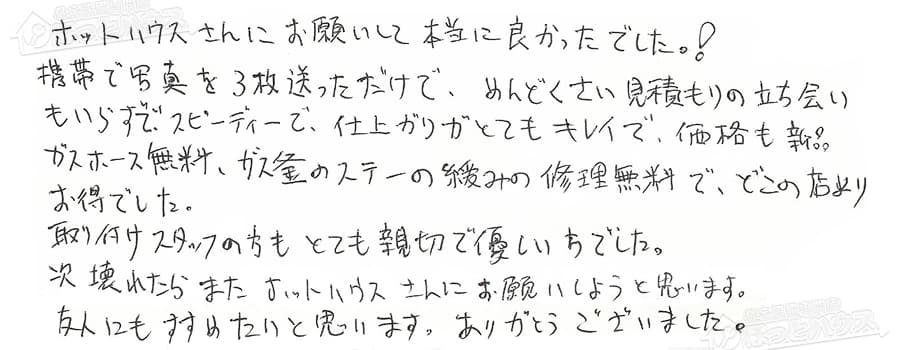 ホットハウスさんにお願いして本当に良かったでした。!
携帯で写真を3枚送っただけで、めんどくさい見積もりの立ち会い
もいらずで、スピーディーで、仕上がりがとてもキレイで、価格も新品
ガスホース無料、ガス釜のステーの緩みの修理無料で、どこの店より
お得でした。
取り付けスタッフの方もとても親切で優しい方でした。
次壊れたらまたホットハウスさんにお願いしようと思います。
友人にもすすめたいと思います。ありがとうございました。